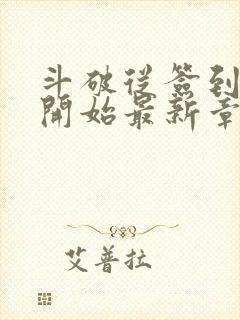 斗破从簽到
開始最新章
艾普拉